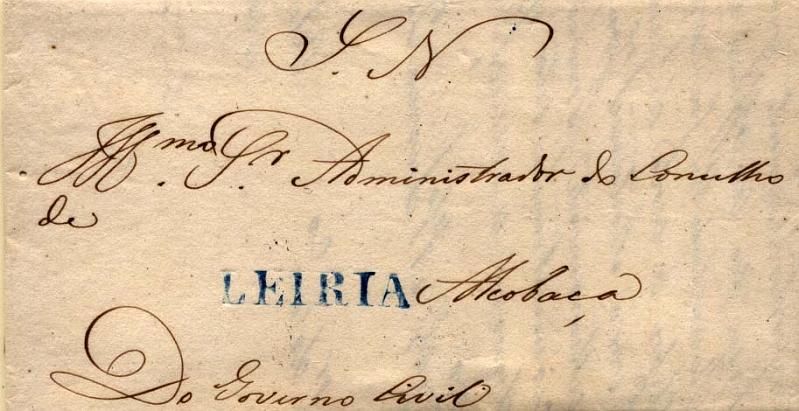 S. N
Illmo. Sr. Administrador do Concelho
de
LEIRIA Alcobaça
Do Governo Civil